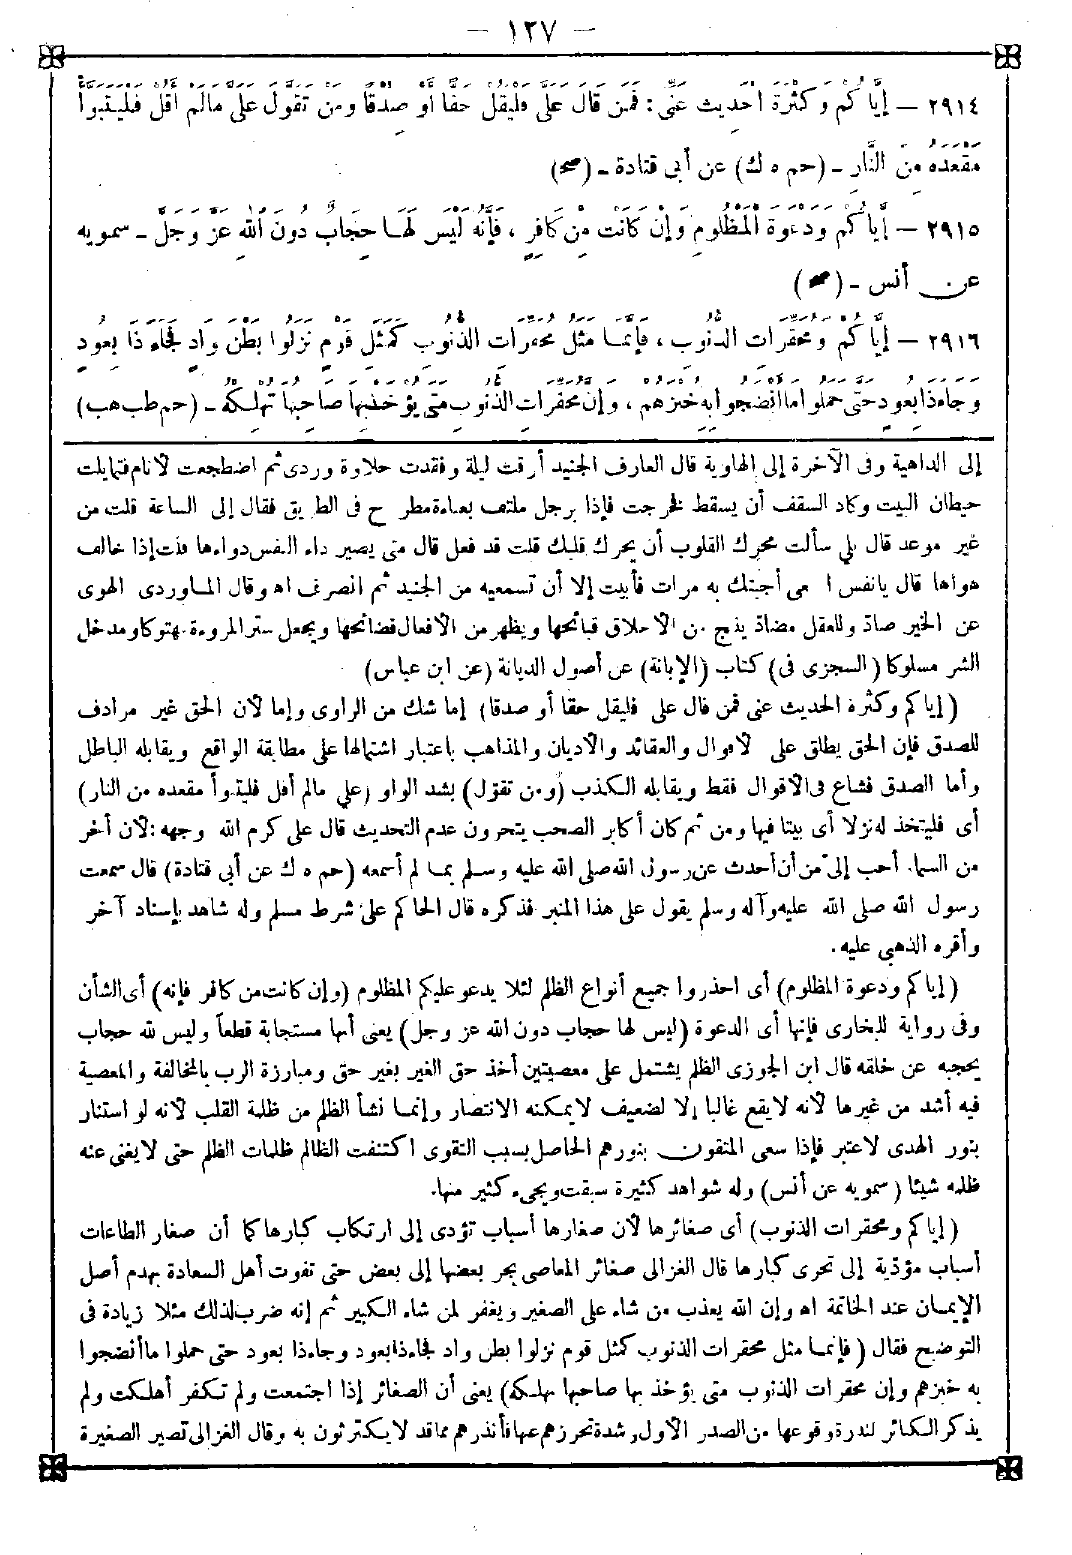 – ١٢٧ –
٢٩١٤ – إِيَّاكُمْ وَكَثْرَةَ الْحَدِيثِ عَنِّي : فَمَنْ قَالَ عَلَيَّ فَلْيَقُلْ حَقًّا أَوْ صِدْقًا وَمَنْ تَقَوَّلَ عَلَيَّ مَالَمْ أَقُلْ فَلْيَتَبَوَّأْ
مَقْعَدَهُ مِنَ النَّارِ – (حم ه ك) عن أبي قتادة – (صح)
٢٩١٥ – إِيَّاكُمْ وَدَعْوَةَ الْمَظْلُومِ وَإِنْ كَانَتْ مِنْ كَافِرٍ ، فَإِنَّهُ لَيْسَ لَهَا حِجَابٌ دُونَ اللهِ عَزَّ وَجَلَّ – سمويه
عن أنس – (صح)
٢٩١٦ – إِيَّاكُمْ وَمُحَقَّرَاتِ الذُّنُوبِ ، فَإِنَّمَا مَثَلُ مُحَقَّرَاتِ الذُّنُوبِ كَمَثَلِ قَوْمٍ نَزَلُوا بَطْنَ وَادٍ فَجَاءَ ذَا بِعُودٍ
وَجَاءَ ذَا بِعُودٍ حَتَّى حَمَلُوا مَا أَنْضَجُوا بِهِ خُبْزَهُمْ ، وَإِنَّ مُحَقَّرَاتِ الذُّنُوبِ مَتَى يُؤْخَذْ بِهَا صَاحِبُهَا تُهْلِكْهُ – (حم طب هب)
إلى الداهية وفى الآخرة إلى الهاوية قال العارف الجنيد أرقت ليلة وفقدت حلاوة وردى ثم اضطجعت لأنام فتمايلت
حيطان البيت وكاد السقف أن يسقط فخرجت فإذا برجل ملتف بعباءة مطروح فى الطريق فقال إلى الساعة قلت من
غير موعد قال بلى سألت محرك القلوب أن يحرك قلبك قلت قد فعل قال متى يصير داء النفس دواءها قلت إذا خالف
هواها قال يانفس اسمعى أجبتك به مرات فأبيت إلا أن تسمعيه من الجنيد ثم انصرف اه وقال الماوردى الهوى
عن الخير صادّ وللعقل مضادّ ينتج من الأخلاق قبائحها ويظهر من الأفعال فضائحها ويجعل ستر المروءة مهتوكا ومدخل
الشر مسلوكا (السجزى فى) كتاب (الإبانة) عن أصول الديانة (عن ابن عباس)
(إياكم وكثرة الحديث عنى فمن قال على فليقل حقا أو صدقا) إما شك من الراوى وإما لأن الحق غير مرادف
للصدق فإن الحق يطلق على الأقوال والعقائد والأديان والمذاهب باعتبار اشتمالها على مطابقة الواقع ويقابله الباطل
وأما الصدق فشاع فى الأقوال فقط ويقابله الكذب (ومن تقوّل) بشد الواو (على مالم أقل فليتبوأ مقعده من النار)
أى فليتخذ له نزلا أى بيتا فيها ومن ثم كان أكابر الصحب يتحرون عدم التحديث قال على كرم الله وجهه : لأن أخر
من السماء أحب إلىّ من أن أحدث عن رسول الله صلى الله عليه وسلم بما لم أسمعه (حم ه ك عن أبى قتادة) قال سمعت
رسول الله صلى الله عليه وآله وسلم يقول على هذا المنبر فذكره قال الحاكم على شرط مسلم وله شاهد بإسناد آخر
وأقره الذهبى عليه .
(إياكم ودعوة المظلوم) أى احذروا جميع أنواع الظلم لئلا يدعو عليكم المظلوم (وإن كانت من كافر فإنه) أى الشأن
وفى رواية للبخارى فإنها أى الدعوة (ليس لها حجاب دون الله عز وجل) يعنى أنها مستجابة قطعاً وليس لله حجاب
يحجبه عن خلقه قال ابن الجوزى الظلم يشتمل على معصيتين أخذ حق الغير بغير حق ومبارزة الرب بالمخالفة والمعصية
فيه أشد من غيرها لأنه لايقع غالبا إلا لضعيف لايمكنه الانتصار وإنما نشأ الظلم من ظلمة القلب لأنه لو استنار
بنور الهدى لاعتبر فإذا سعى المتقون بنورهم الحاصل بسبب التقوى اكتنفت الظالم ظلمات الظلم حتى لايغنى عنه
ظلمه شيئا (سمويه عن أنس) وله شواهد كثيرة سبقت ويجىء كثير منها.
(إياكم ومحقرات الذنوب) أى صغائرها لأن صغارها أسباب تؤدى إلى ارتكاب كبارها كما أن صغار الطاعات
أسباب مؤدّية إلى تحرى كبارها قال الغزالى صغائر المعاصى يجر بعضها إلى بعض حتى تفوت أهل السعادة بهدم أصل
الإيمان عند الخاتمة اه وإن الله يعذب من شاء على الصغير ويغفر لمن شاء الكبير ثم إنه ضرب لذلك مثلا زيادة فى
التوضيح فقال (فإنما مثل محقرات الذنوب كمثل قوم نزلوا بطن واد فجاء ذا بعود وجاء ذا بعود حتى حملوا ما أنضجوا
به خبزهم وإن محقرات الذنوب متى يؤخذ بها صاحبها تهلكه) يعنى أن الصغائر إذا اجتمعت ولم تكفر أهلكت ولم
يذكر الكبائر لندرة وقوعها من الصدر الأول وشدة تحرزهم عنها فأنذرهم مما قد لايكترثون به وقال الغزالى تصير الصغيرة